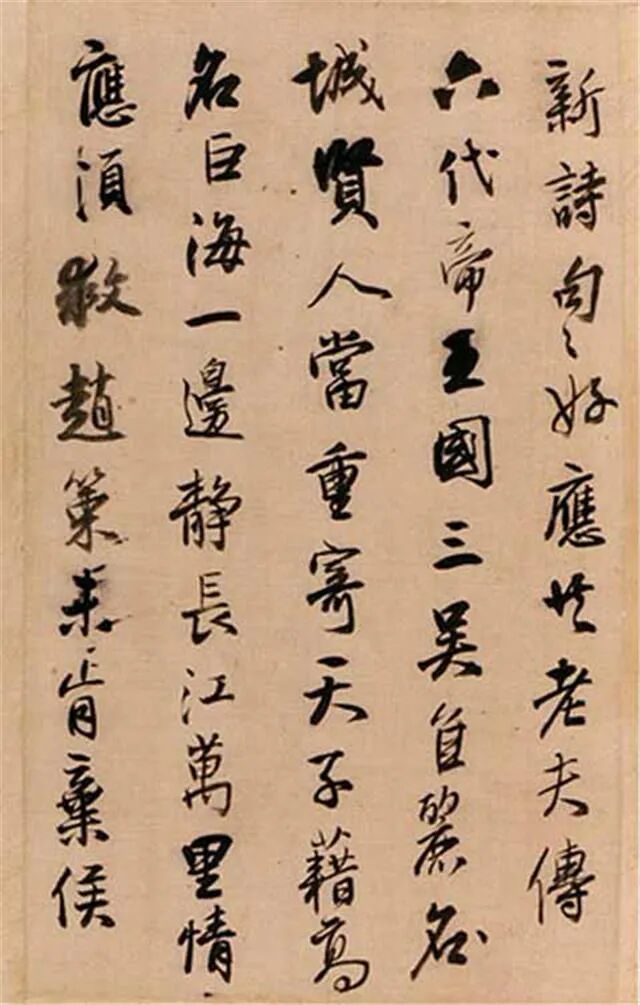 新詩句〻好應共老夫傳
六代帝王國三吳自麗名
城賢人當重寄天子藉高
名巨海一邊靜長江萬里情
應須救趙策未肯棄侯